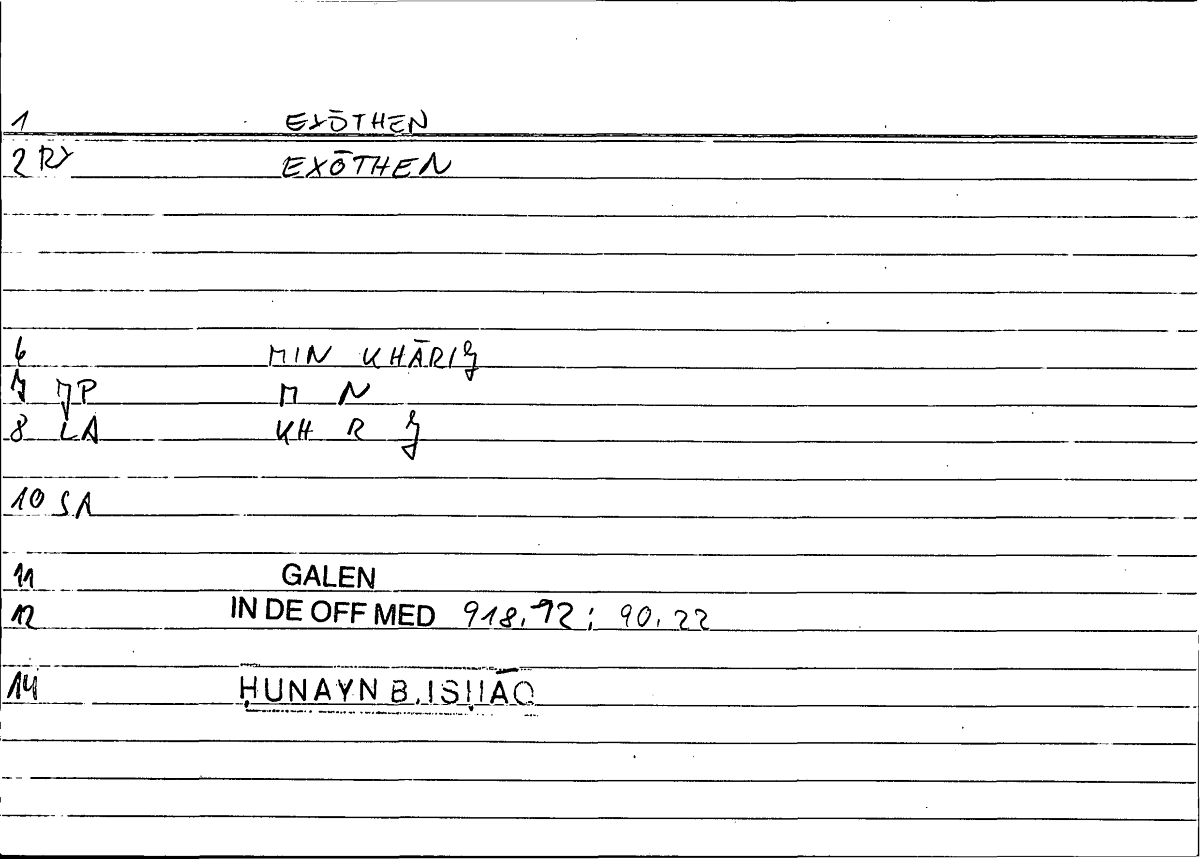 1 EXŌTHEN
2 RY EXŌTHEN
6 MIN KHĀRIǦ
7 JP M N
8 LA KH R Ǧ
10 SA
11 GALEN
12 IN DE OFF MED 918,12; 90,22
14 ḤUNAYN B. ISḤĀQ